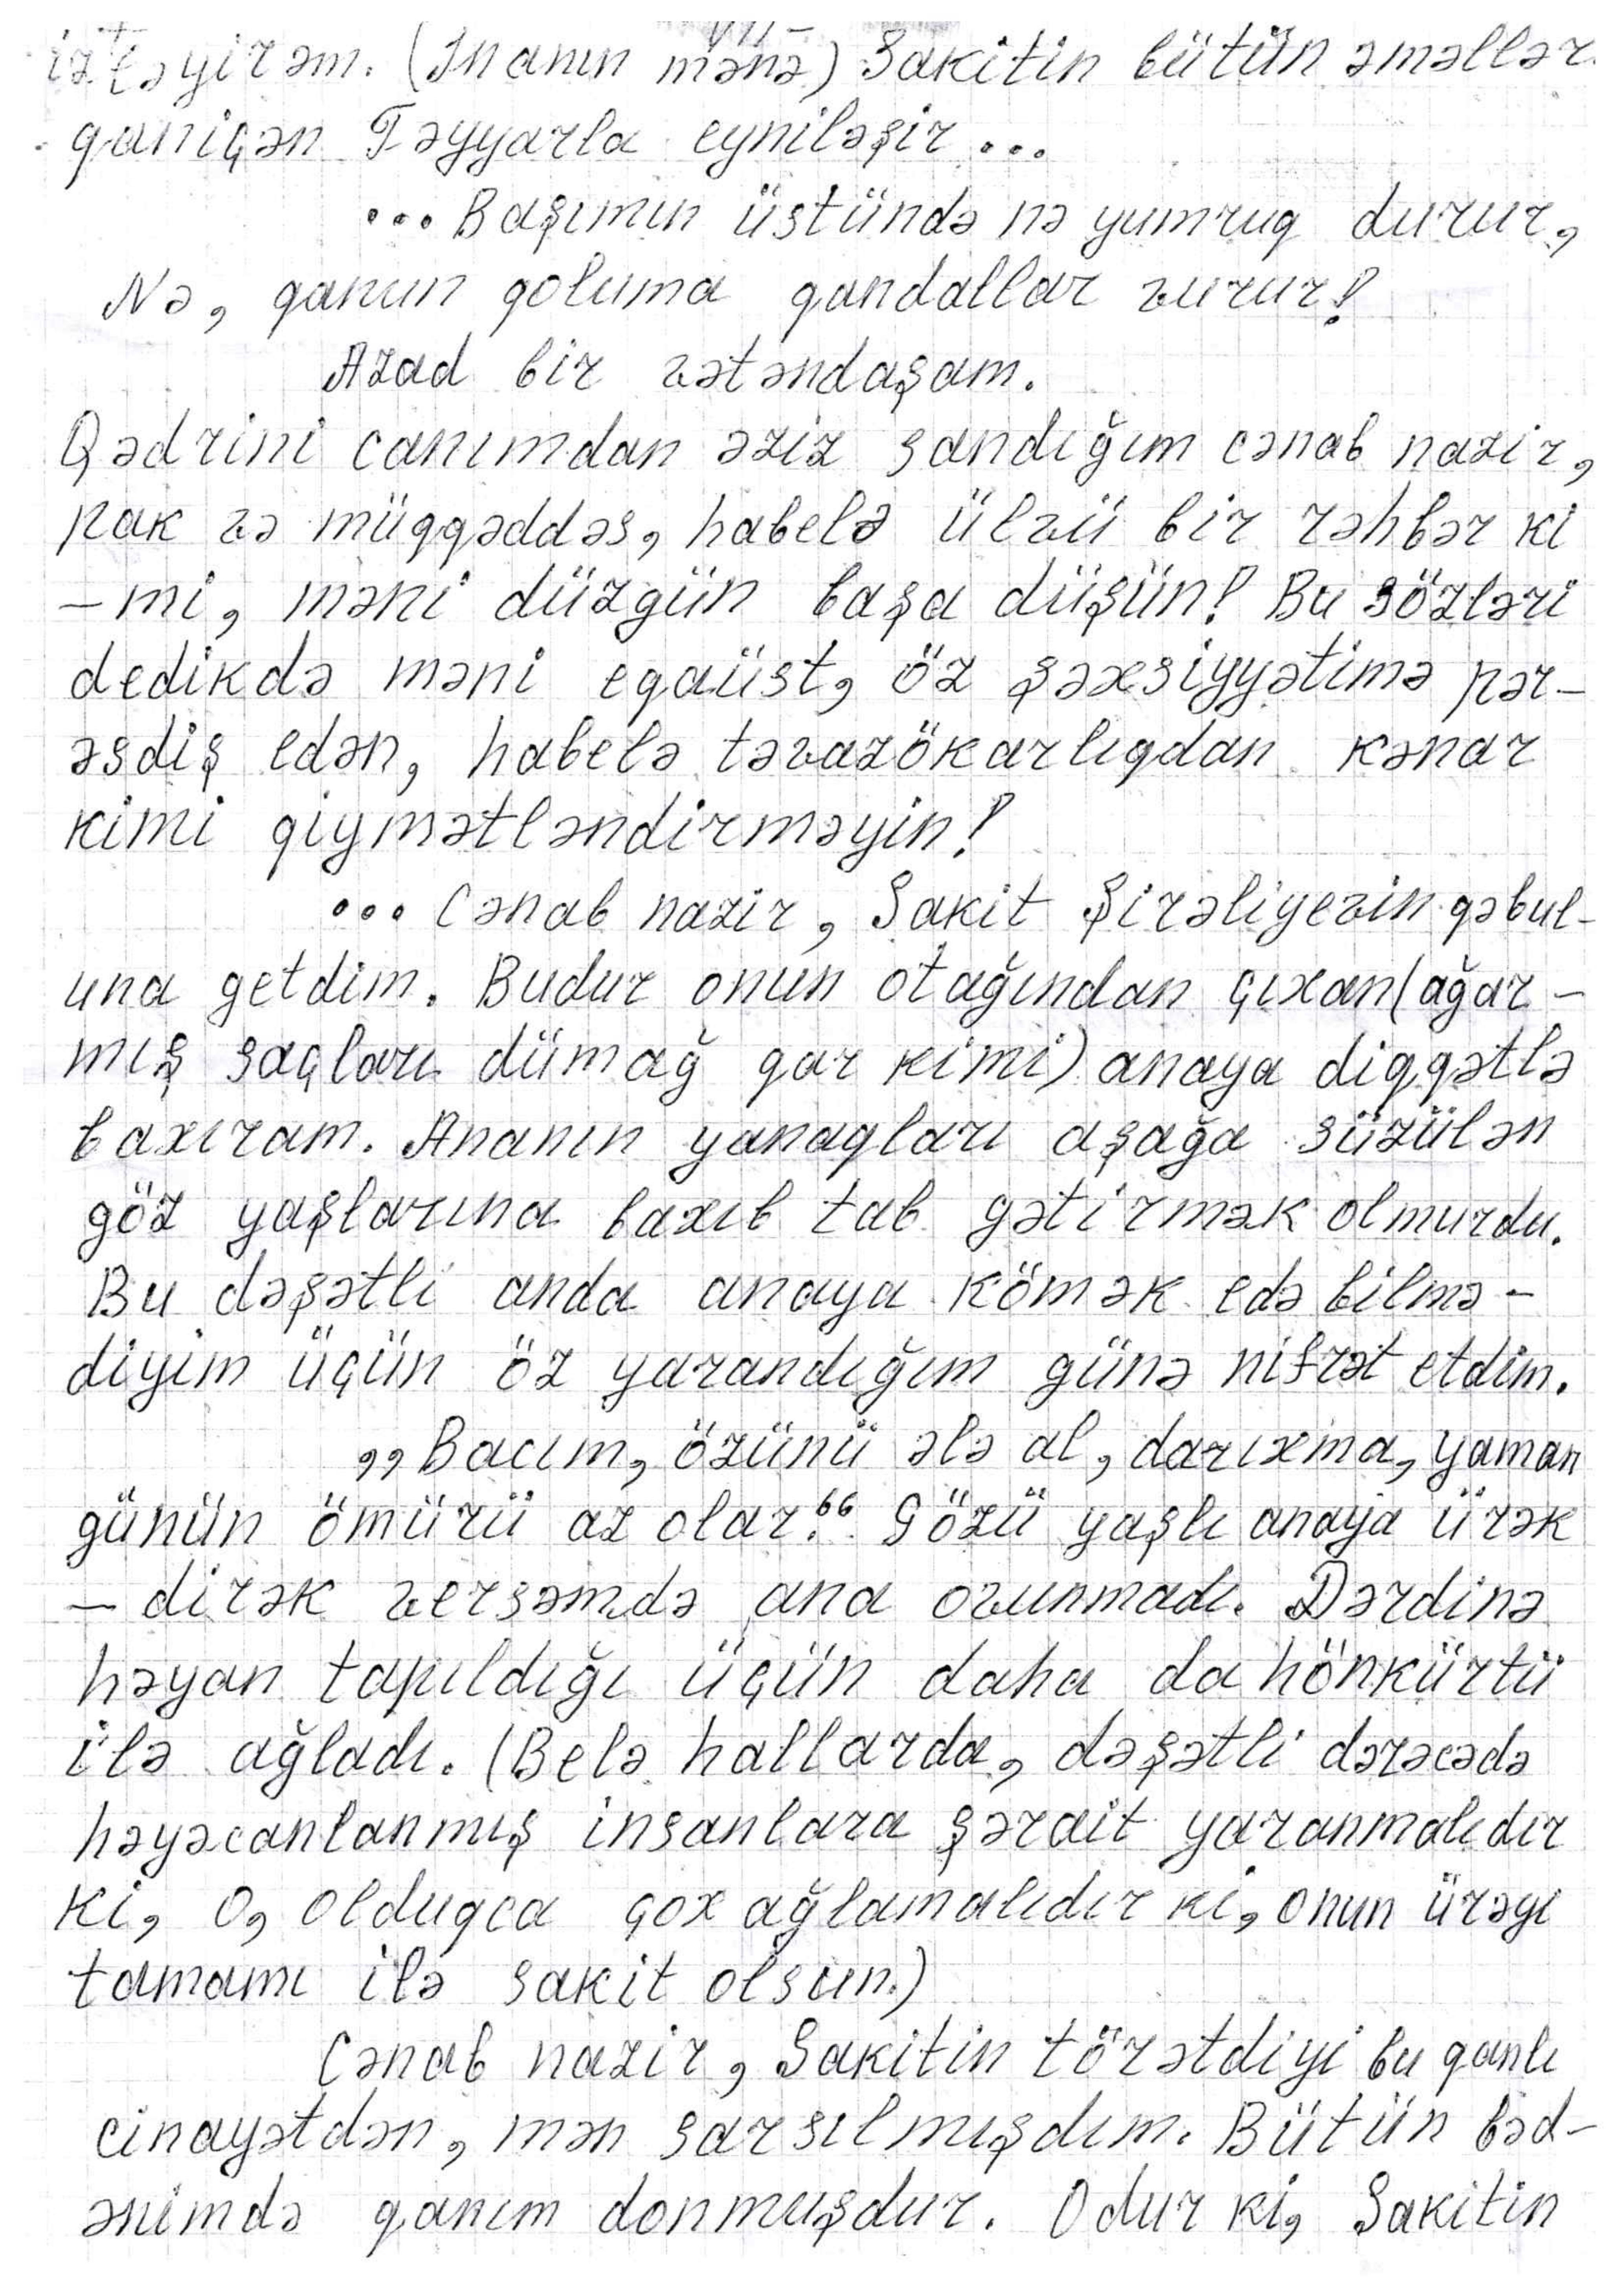 – VII –
istəyirəm. (İnanın mənə) Sakitin bütün əməllər
qaniçən Təyyarla eyniləşir...
... Başımın üstündə nə yumruq durur,
Nə, qanun qoluma qandallar vurur!
Azad bir vətəndaşam.
Qədrini canımdan əziz sandığım cənab nazir,
pak və müqqəddəs, habelə ülvü bir rəhbər ki
–mi, məni düzgün başa düşün! Bu sözləri
dedikdə məni eqaüst, öz şəxsiyyətimə pər–
əsdiş edən, habelə təvazökarlıqdan kənar
kimi qiymətləndirməyin!
... Cənab nazir, Sakit Şirəliyevin qəbul–
una getdim. Budur onun otağından çıxan (ağar–
mış saçları dümağ qar kimi) anaya diqqətlə
baxıram. Ananın yanaqları aşağa süzülən
göz yaşlarına baxıb tab gətirmək olmurdu.
Bu dəşətli anda anaya kömək edə bilmə–
diyim üçün öz yarandığım günə nifrət etdim.
,,Bacım, özünü ələ al, darıxma, yaman
günün ömürü az olar.“ Gözü yaşlı anaya ürək
– dirək versəmdə ana ovunmadı. Dərdinə
həyan tapıldığı üçün daha da hönkürtü
ilə ağladı. (Belə hallarda, dəşətli dərəcədə
həyəcanlanmış insanlara şərait yaranmalıdır
ki, o, olduqca çox ağlamalıdır ki, onun ürəyi
tamamı ilə sakit olsun.)
Cənab nazir, Sakitin törətdiyi bu qanlı
cinayətdən, mən sarsılmışdım. Bütün bəd–
ənimdə qanım donmuşdur. Odur ki, Sakitin